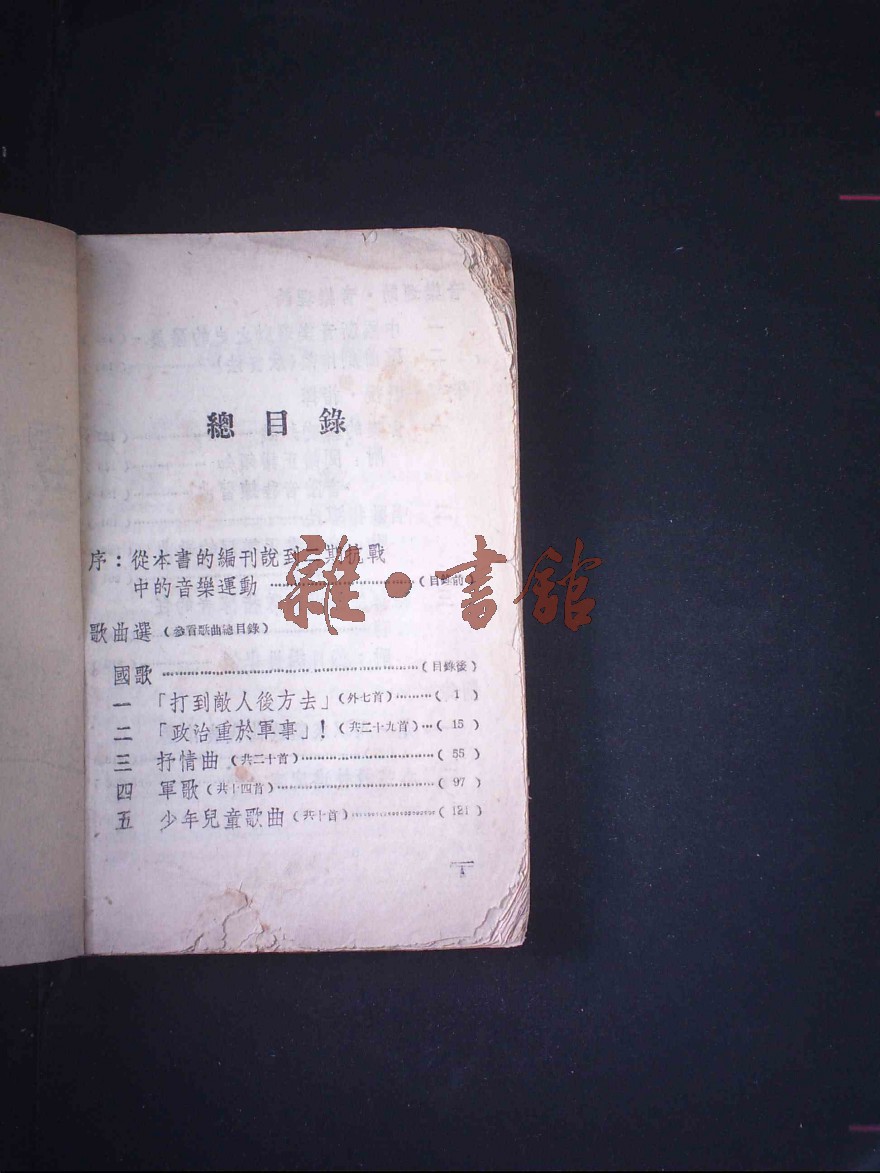 總目錄
序：從本書的編刊說到二期抗戰
中的音樂運動………………（目錄前）
歌曲選（參看歌曲總目錄）
國歌………………（目錄後）
一 「打到敵人後方去」（外七首）………（1）
二 「政治重於軍事」！（共二十九首）…（15）
三 抒情曲（共二十首）………………（55）
四 軍歌（共十四首）………………（97）
五 少年兒童歌曲（共十首）………………（121）
1
雜·書館